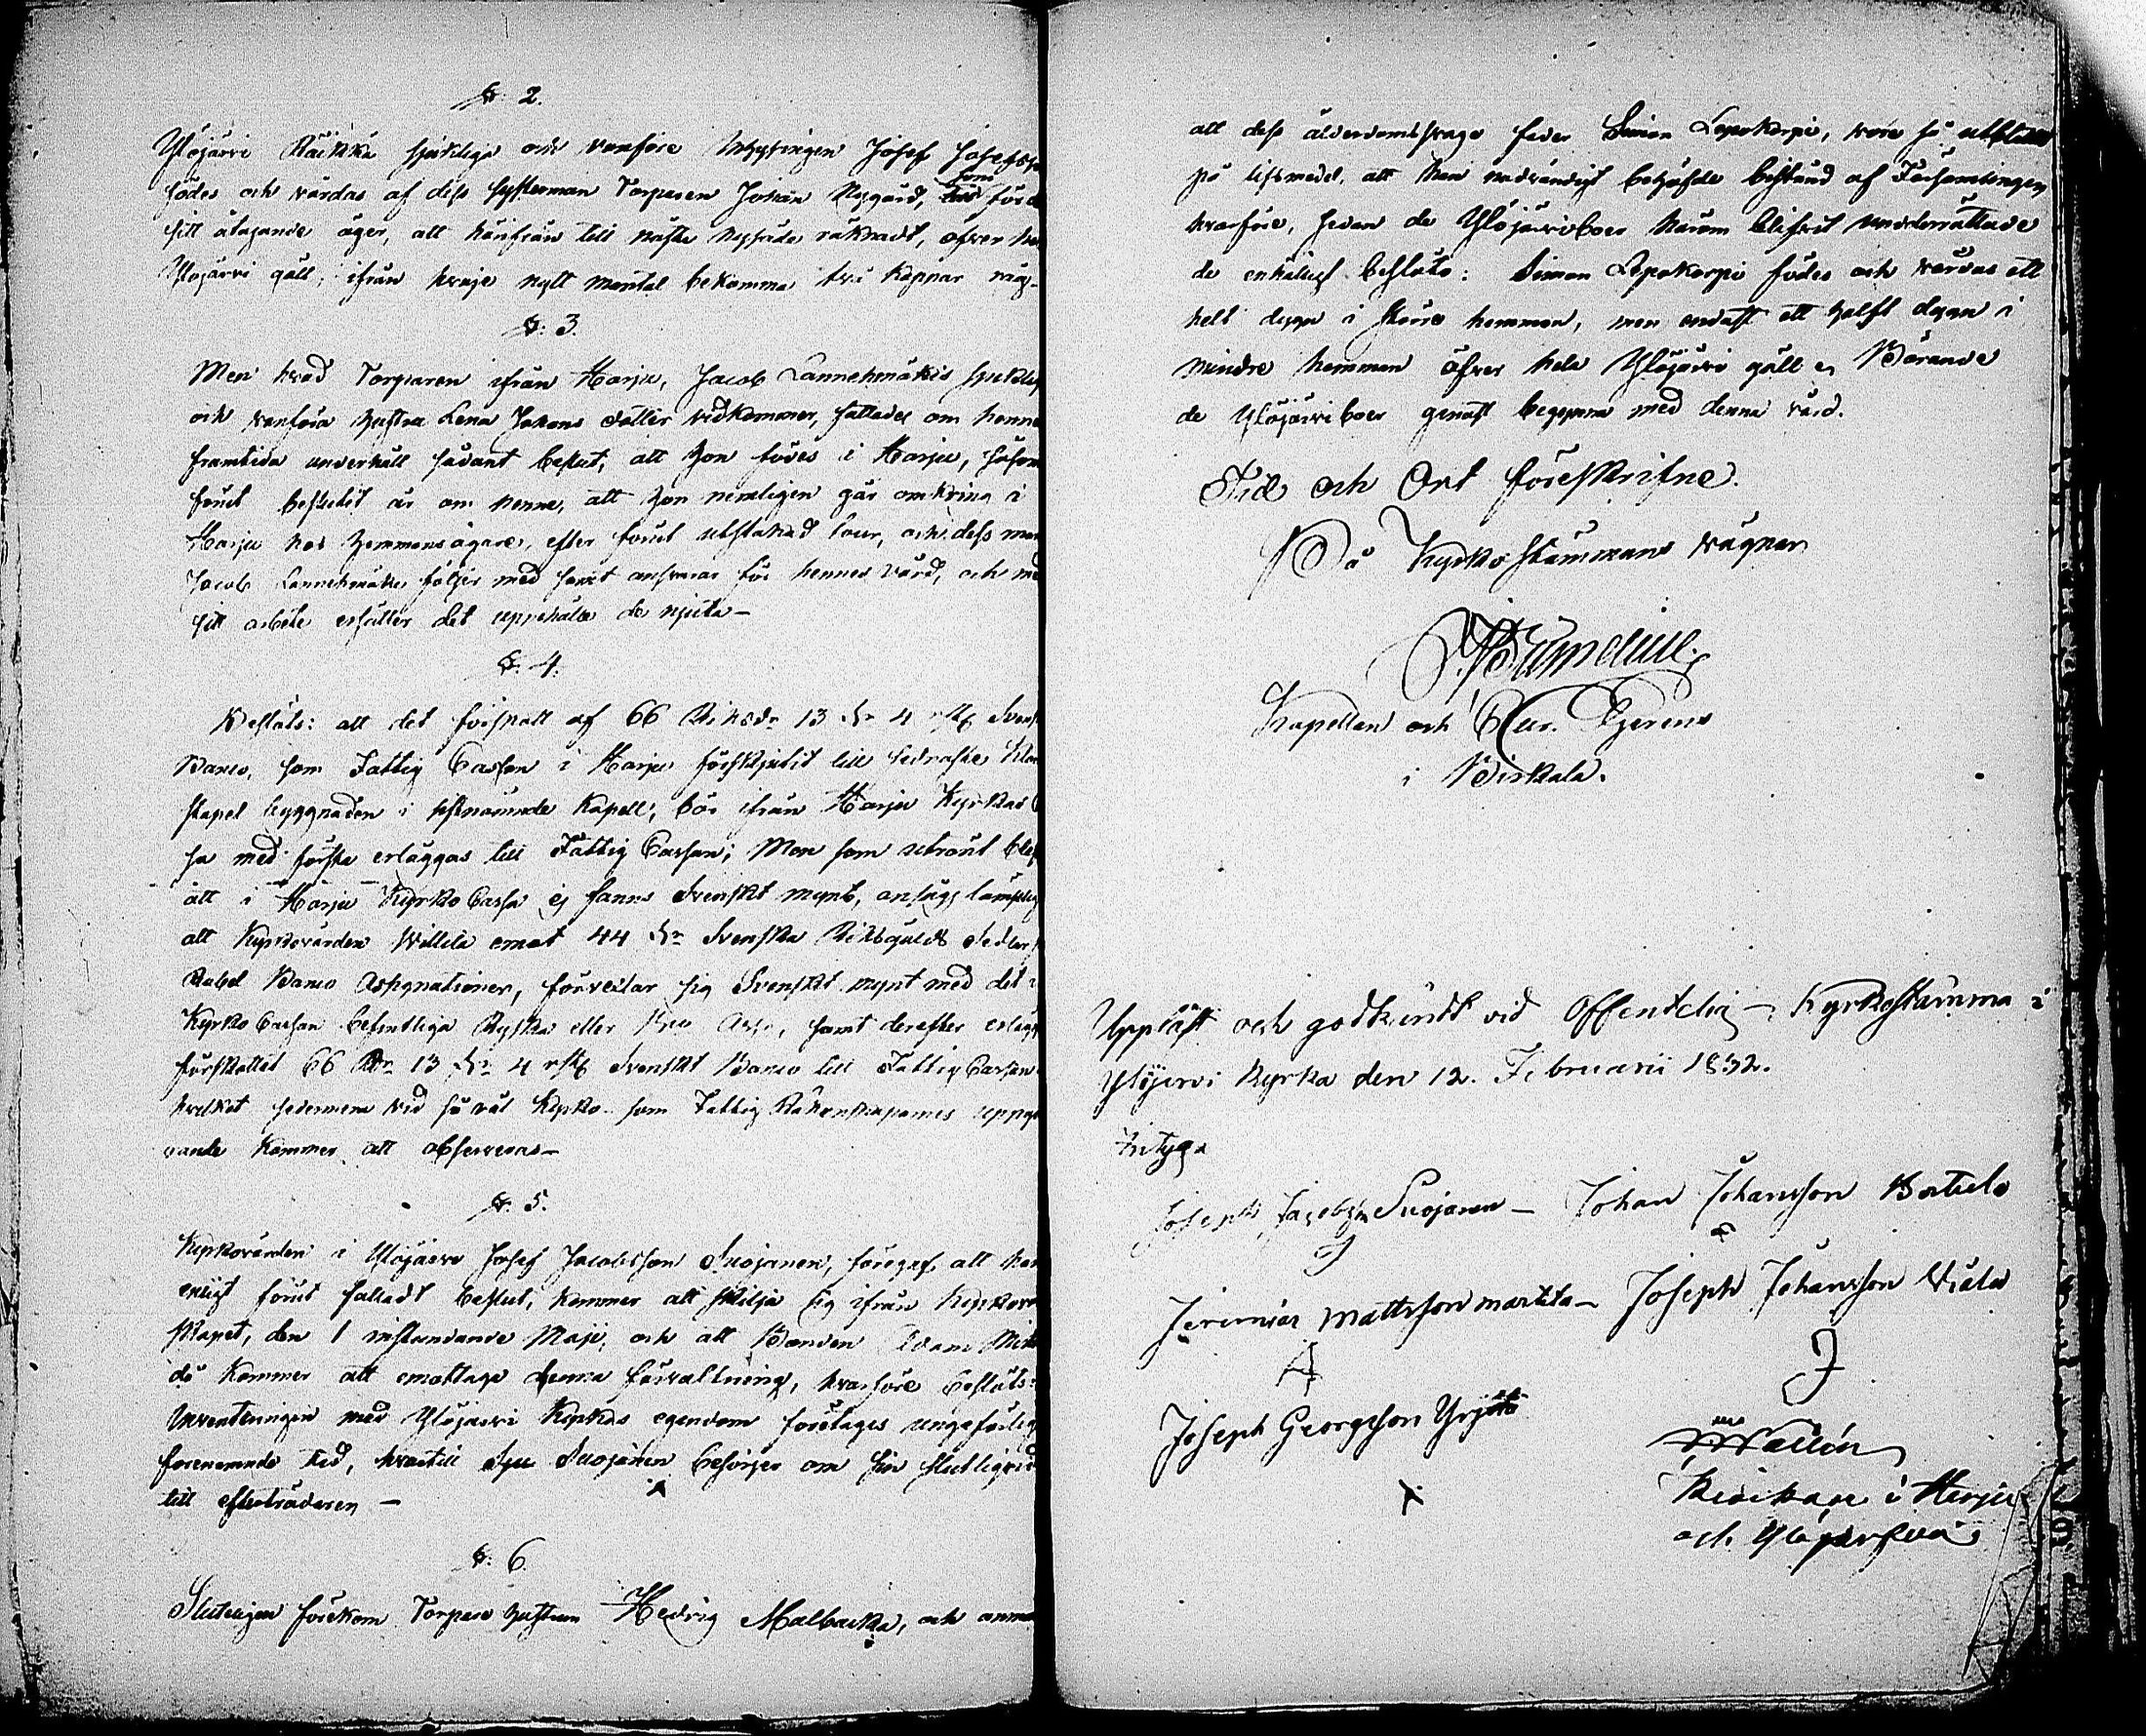 §. 2.
Ylöjärvi Räikkä sjuklige och vanföre Inhysingen Josef Josefss
födes och vårdas af dess svåger man Torparen Johan Nygård, som för d
sitt åtagande äger, att härifrån till nästa nyårsdag räknadt, öfver he
Ylöjärvi gäll, ifrån hvarje nytt mantal bekomma två kappar råg-
§. 3.
Men hvad Torparen ifrån Harju, Jacob Lannehmäkis sjuklig
och vanföra hustru Lena Johans dotter vidkommer, fattades om henne
framtida underhåll sådant beslut, att hon födes i Harju, såsom
förut beslutit är om henne, att hon nemligen går omkring i
Harju hos hemmansägare, efter förut utstakad tour, och dess man
Jacob Lannehmäki följer med samt ansvarar för hennes vård, och med
sitt arbete ersätter det uppehälle de njuta-
§. 4.
Beslöts: att det förskott af 66 Riksdr 13 sk 4 rst Svensk
Banco, som Fattig Cassan i Harju förskjutit till sednaste Klo
stapel byggnaden i sistnämnde Kapell, bör ifrån Harju Kyrkas C
sa med första erläggas till Fattig Cassan; Men som utrönt blef
att i Harju Kyrko Cassa ej fanns Svenskt mynt, ansågs lämplig
att Kyrkovärden Willila emot 44 sk Svenska Riksgälds Sedlar p
Rubel Banco Assignationer, förvexlar sig Svenskt mynt med det i
Kyrko Cassan befintliga Ryska eller Bco Assr, samt derefter erlägg
förskottet 66 Rdr 13 sk 4 rst Svenskt Banco till Fattig Cassan
hvilket sedermera vid så väl Kyrko- som Fattig Räkenskapernes uppgö
rande kommer att observeras-
§. 5.
Kyrkovärden i Ylöjärvi Josef Jacobsson Suojanen, föregaf, att han
enligt förut fattadt beslut, kommer att skilja sig ifrån Kyrkovär
skapet, den 1 instundande Maji, och att Bonden Adam Mik
då kommer att emottaga denna förvaltning, hvarföre beslöts:
Inventeringen med Ylöjärvi Kyrkas egendom företages ungefärlig
förenämnde tid, hvartill Suojanen besörjer om sin slutliga red
till efterträdaren -
§. 6.
Slutligen förekom Torpare hustrun Hedvig Malbacka, och anmä
att dess ålderdomssvage fader Simon Lepokorpi, vore så utblottad
på lifsmedel, att han nödvändigt behöfde bistånd af Församlingen
hvarföre, sedan de Ylöjärviboer härom blifvit underrättade
de enhälligt beslöto: Simon Lepokorpi födes och vårdas ett
helt dygn i större hemman, men endast ett halft dygn i
mindre hemman öfver hela Ylöjärvi gäll. Börande
de Ylöjärviboer genast begynna med denna vård.
Tid och Ort föreskrifne.
På Kyrkostämmans vägnar
Kapellan och Cur. Gerens
i Birkala.
Uppläst och godkändt vid Offentelig Kyrkostämma i
Ylöjervi Kyrka den 12. Februarii 1832.
Intyga
Joseph Jacobsson Suojanen - Johan Johansson Bertula
Jeremias Mattsson Martila - Joseph Johansson Viala
A J
Joseph Georgsson Yrjölä
Wallén
Kesikare i Harju
och Ylöjärfvi